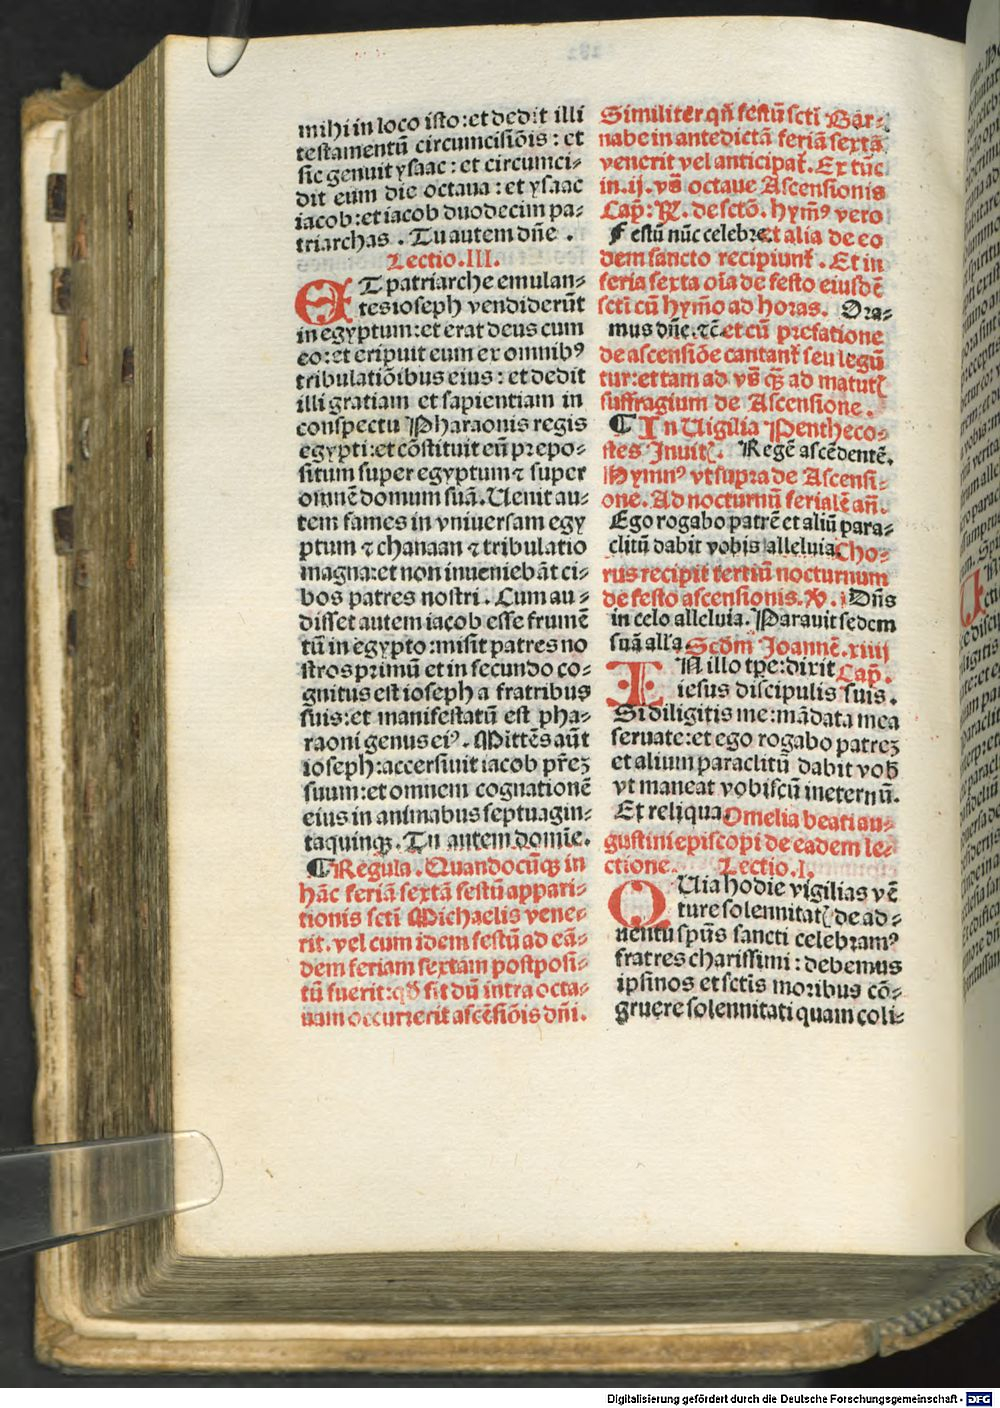 mihi in loco isto: et dedit illi
testamentū circumcisiōis: et
sic genuit ysaac: et circumci-
dit eum die octaua: et ysaac
iacob: et iacob duodecim pa-
triarchas. Tu autem dn̄e.
Lectio.III.
ET patriarche emulan-
tes ioseph vendiderūt
in egyptum: et erat deus cum
eo: et eripuit eum ex omnibꝰ
tribulatiōibus eius: et dedit
illi gratiam et sapientiam in
conspectu Pharaonis regis
egypti: et cōstituit eū prepo-
situm super egyptum ⁊ super
omnē domum suā. Uenit au-
tem fames in vniuersam egy
ptum ⁊ chanaan ⁊ tribulatio
magna: et non inueniebāt ci-
bos patres nostri. Cum au-
disset autem iacob esse frumē
tū in egypto: misit patres no
stros primū et in secundo co-
gnitus est ioseph a fratribus
suis: et manifestatū est pha-
raoni genus eiꝰ. Mittēs aūt
ioseph: accersiuit iacob pr̄eꝫ
suum: et omnem cognationē
eius in animabus septuagin-
taquinqꝫ. Tu autem domīe.
¶ Regula. Quandocūqꝫ in
hāc feriā sextā festū appari-
tionis scti Michaelis vene-
rit. vel cum idem festū ad eā-
dem feriam sextam postposi-
tū fuerit: qđ fit dū intra octa-
uam occurrerit ascēsiōis dn̄i.
Similiter qn̄ festū scti Bar-
nabe in antedictā feriā sextā
venerit vel anticipat̄. Ex tūc
in.ij.vs̄ octaue Ascensionis
Cap̄: ℟. de sctō. hym̄ꝰ vero
Festū nūc celebre. et alia de eo
dem sancto recipiunt̄. Et in
feria sexta oīa de festo eiusdē
scti cū hym̄o ad horas. Ora-
mus dn̄e. ⁊c̄. et cū prefatione
de ascensiōe cantant̄ seu legū
tur: et tam ad vs̄ qꝫ ad matut̄
suffragium de Ascensione.
¶ In Uigilia Pentheco-
stes Inuit̄. Regē ascēdentē.
Hymnꝰ vt supra de Ascensi-
one. Ad nocturnū ferialē an̄.
Ego rogabo patrē et aliū para-
clitū dabit vobis alleluia. Cho-
rus recipit tertiū nocturnum
de festo ascensionis. ℣. Dn̄s
in celo alleluia. Parauit sedem
suā alla. Scd̄m Joannē. xiiij
Cap̄.
IN illo tp̄e: dixit
iesus discipulis suis.
Si diligitis me: mādata mea
seruate: et ego rogabo patreꝫ
et alium paraclitū dabit vob̄
vt maneat vobiscū in eternū.
Et reliqua. Omelia beati au-
gustini episcopi de eadem le-
ctione. Lectio.I.
QUia hodie vigilias vē
ture solennitat̄ de ad-
uentu sp̄us sancti celebramꝰ
fratres charissimi: debemus
ipsi nos et sctis moribus cō-
gruere solennitati quam coli-
Digitalisierung gefördert durch die Deutsche Forschungsgemeinschaft - DFG